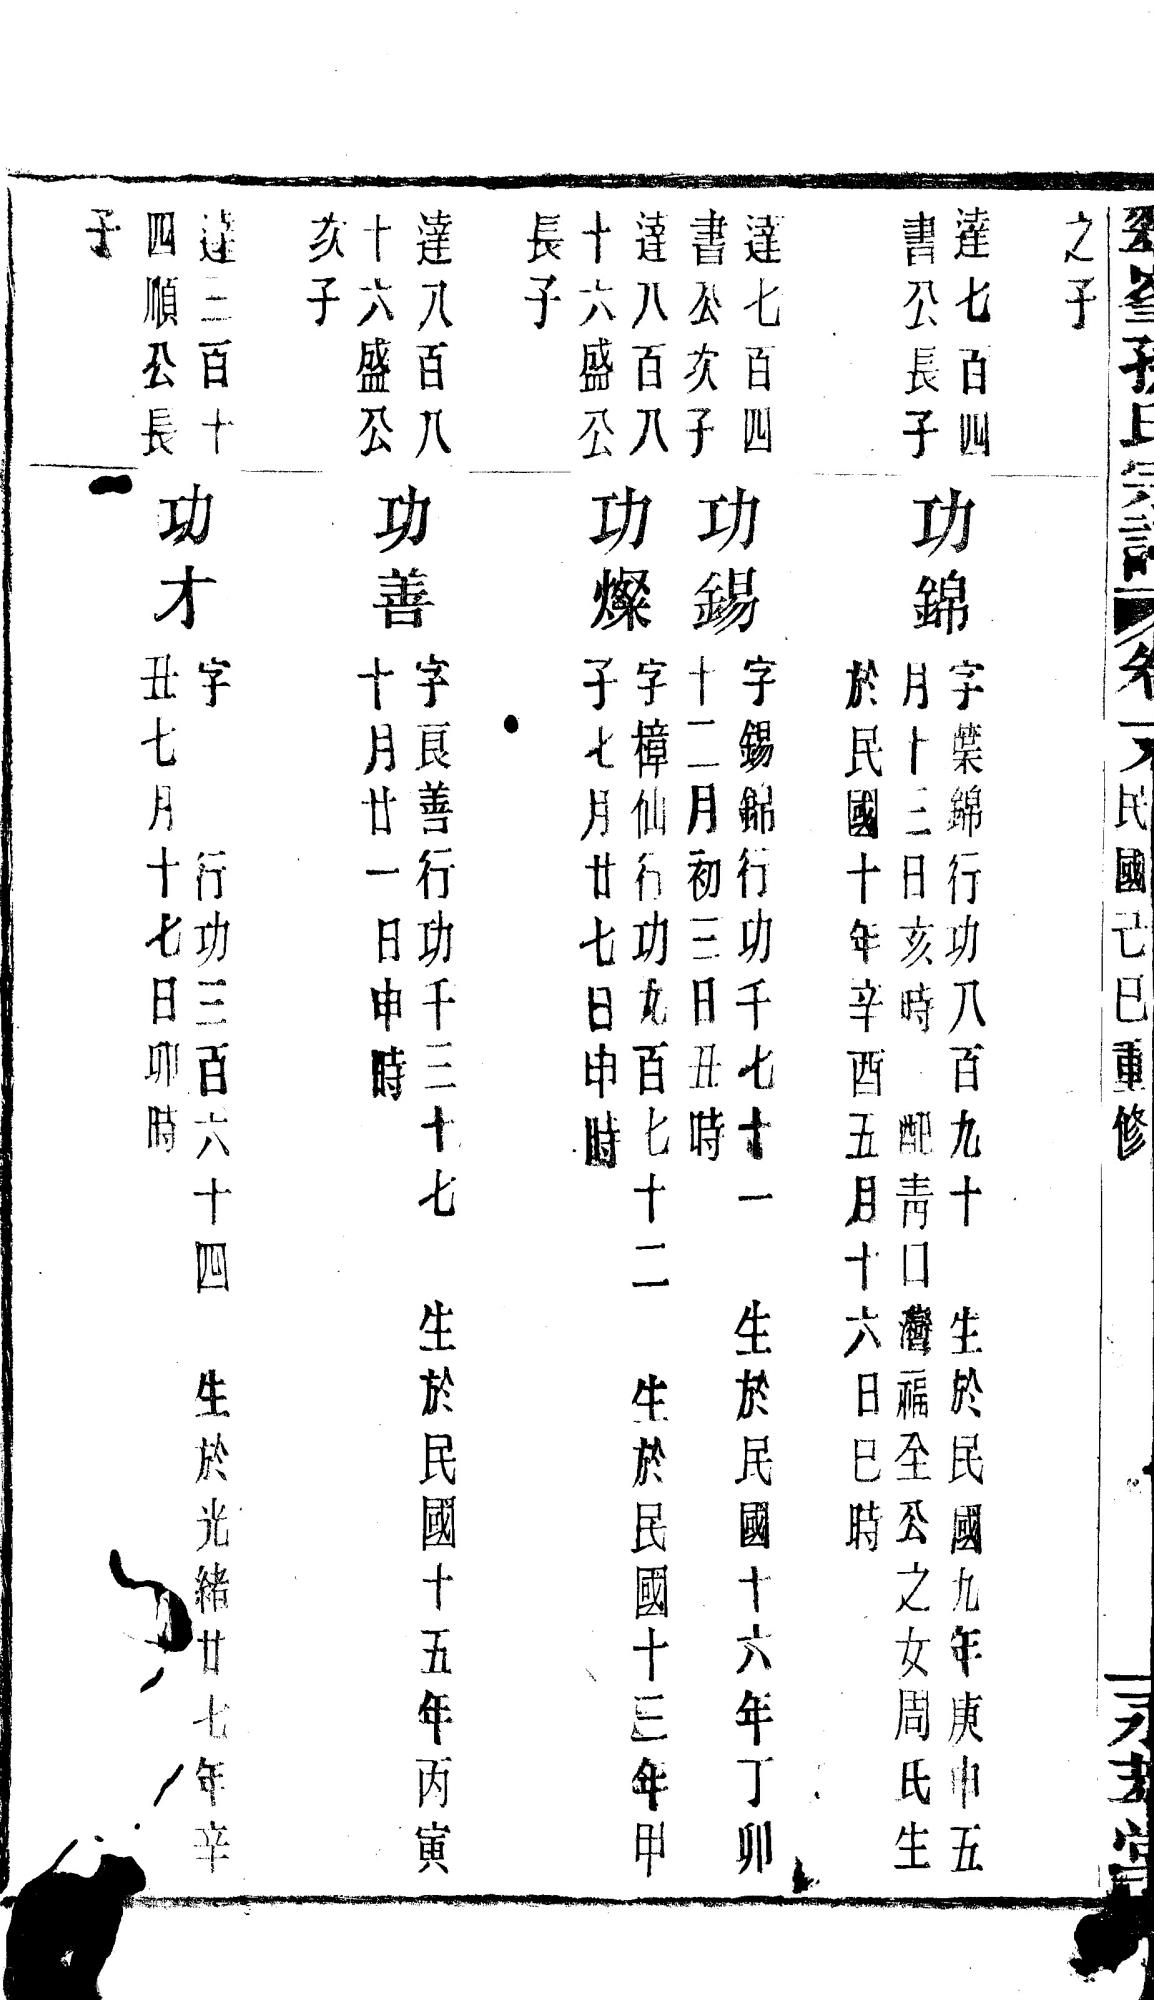 孫氏宗譜 卷 民國己巳重修
之子
達七百四
書公長子
功錦
字葉錦行功八百九十 生於民國九年庚申五
月十三日亥時 配靑口灣福全公之女周氏生
於民國十年辛酉五月十六日巳時
達七百四
書公次子
功錫
字錫錦行功千七十一 生於民國十六年丁卯
十二月初三日丑時
達八百八
十六盛公
長子
功燦
字樟仙行功九百七十二 生於民國十三年甲
子七月廿七日申時
達八百八
十六盛公
次子
功善
字良善行功千三十七 生於民國十五年丙寅
十月廿一日申時
達三百十
四順公長
子
功才
字 行功三百六十四 生於光緒廿七年辛
丑七月十七日卯時